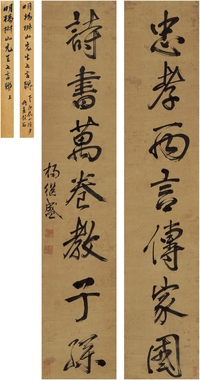 忠孝兩言傳家國
詩書萬卷教子孫
楊繼盛
明楊椒山先生七言聯
明楊椒山先生七言聯 上